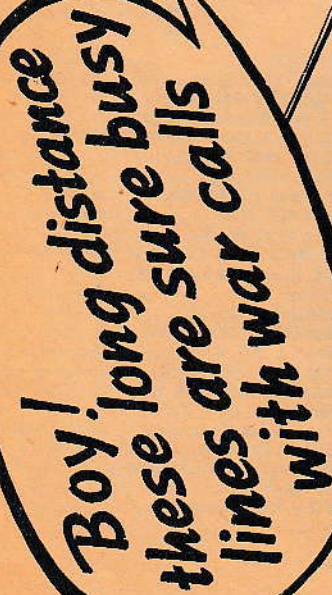 Boy!
these long distance
lines are sure busy
with war calls